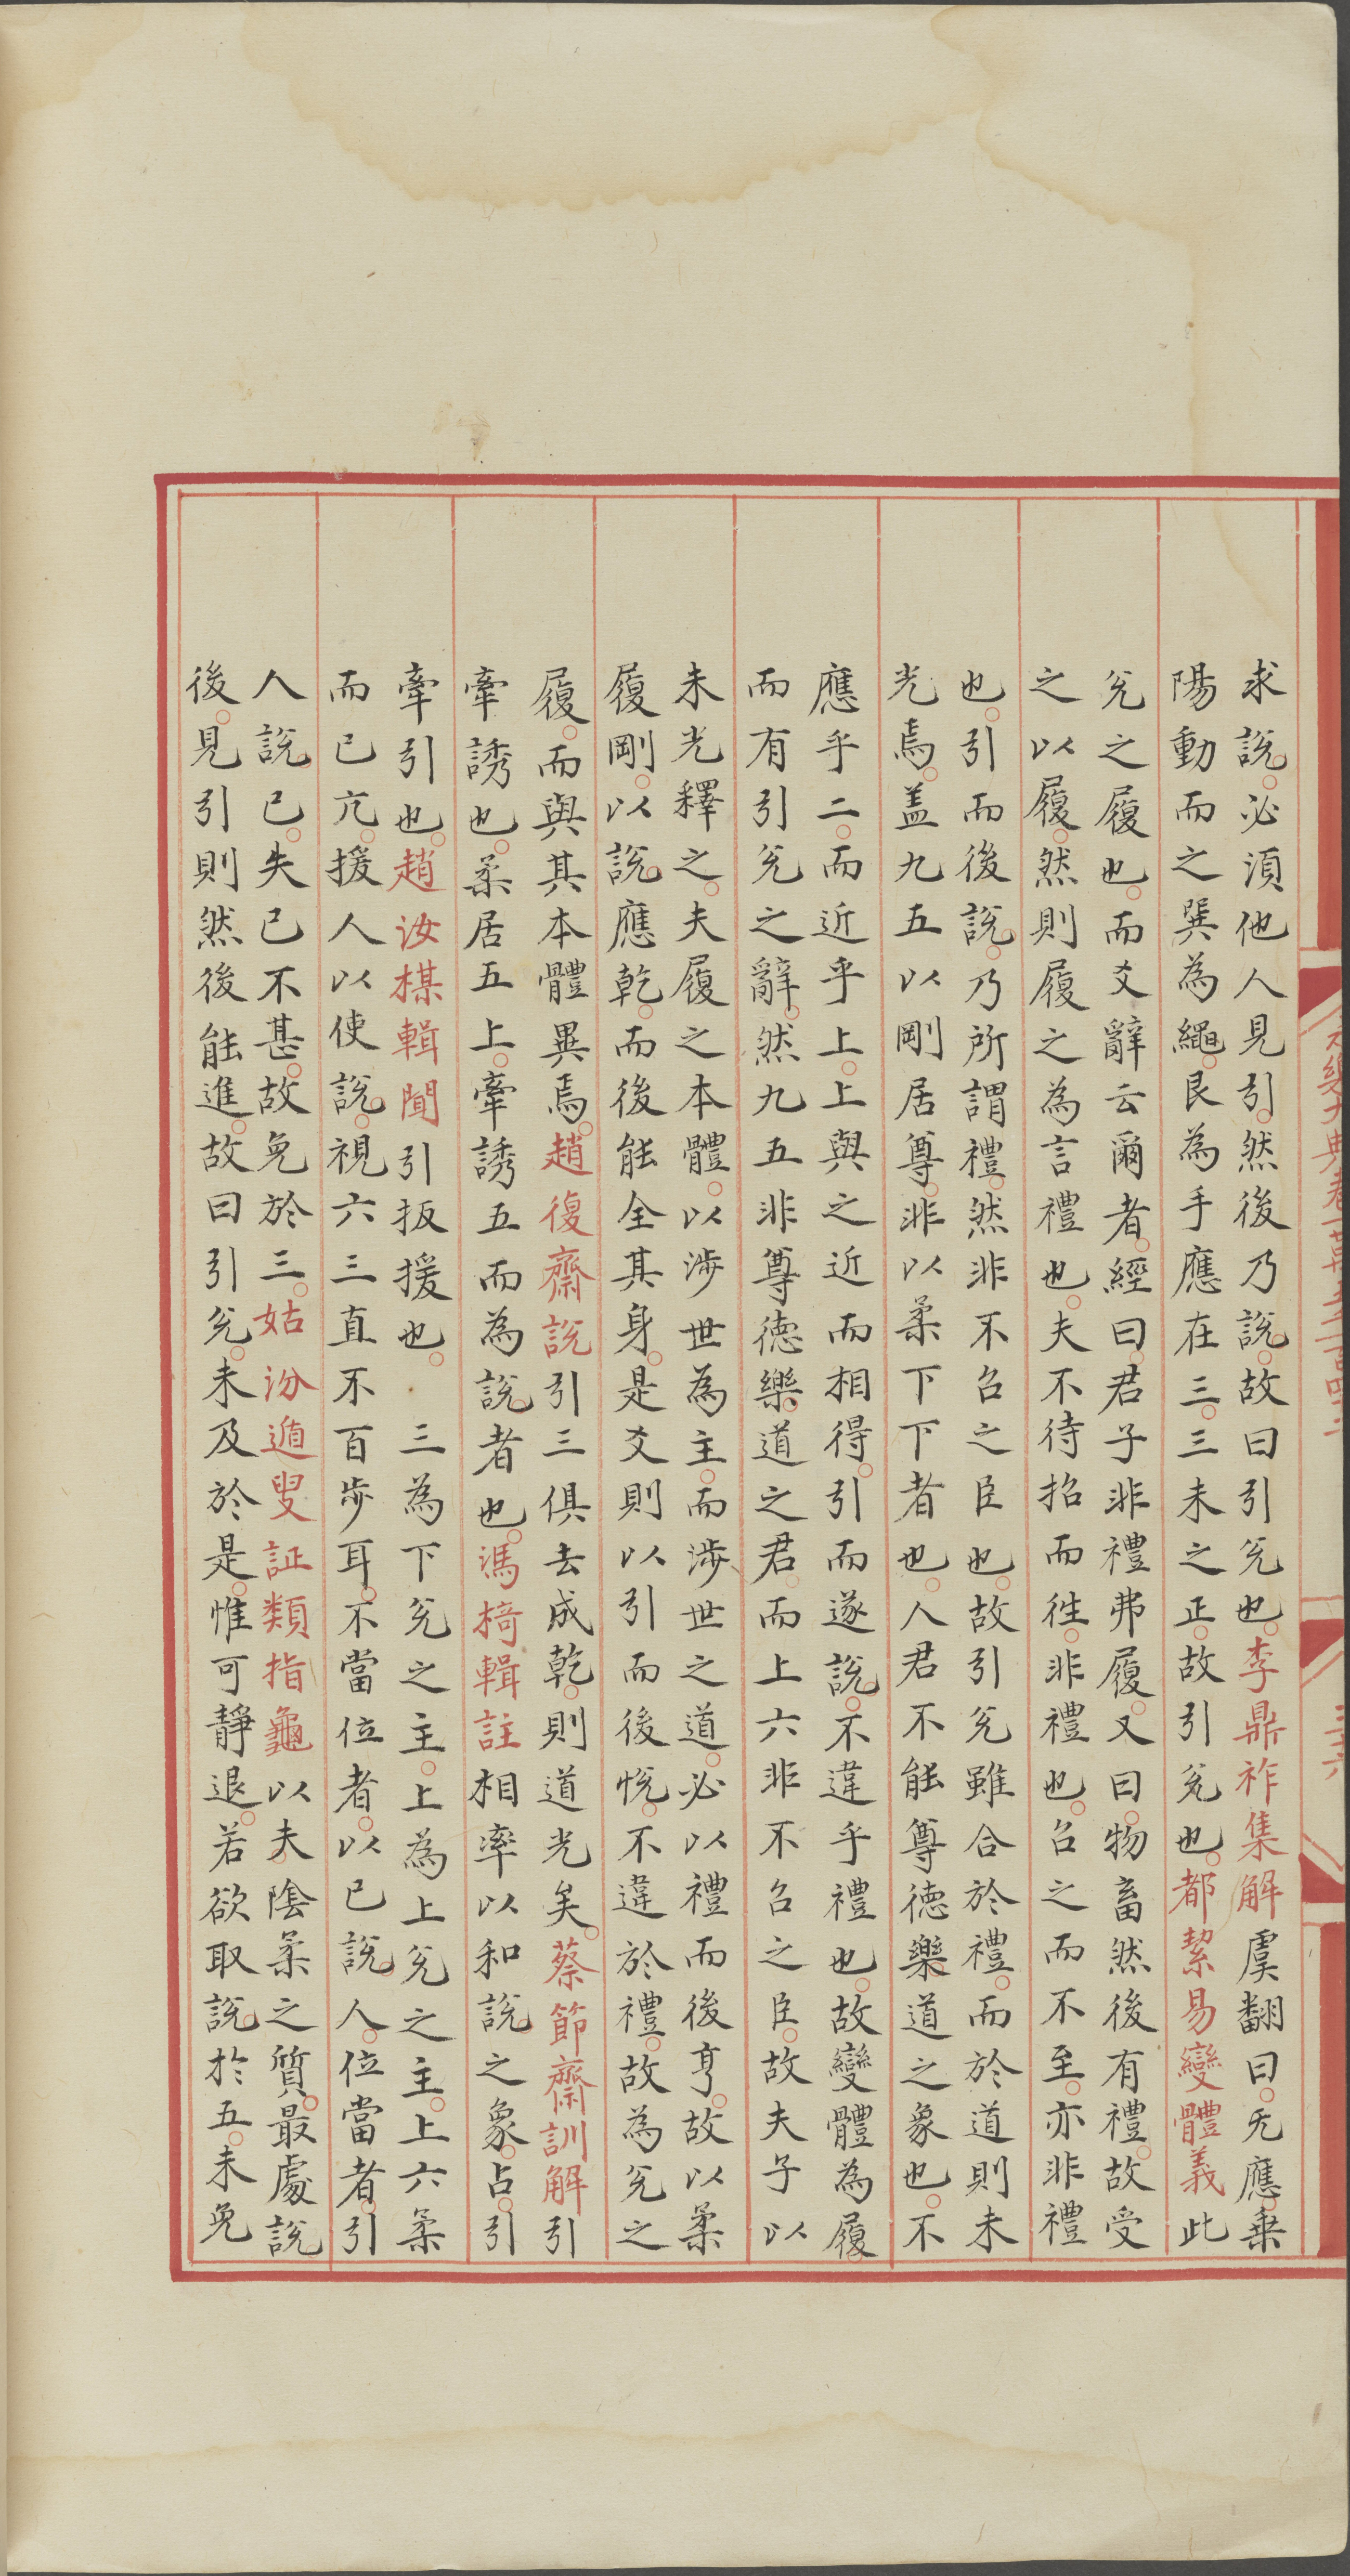 求說必須他人見引然後乃說故曰引兊也李鼎祚集解虞翻曰无應乗
陽動而之巽為繩艮為手應在三三未之正故引兊也都絜易變體義此
兊之履也而爻辭云爾者經曰君子非禮弗履又曰物畜然後有禮故受
之以履然則履之為言禮也夫不待招而徃非禮也召之而不至亦非禮
也引而後說乃所謂禮然非不召之臣也故引兊雖合於禮而於道則未
光焉盖九五以剛居尊非以柔下下者也人君不能尊德樂道之象也不
應乎二而近乎上上與之近而相得引而遂說不違乎禮也故變體為履
而有引兊之辭然九五非尊德樂道之君而上六非不召之臣故夫子以
未光釋之夫履之本體以涉世為主而涉世之道必以禮而後亨故以柔
履剛以說應乾而後能全其身是爻則以引而後悅不違於禮故為兊之
履而與其本體異焉趙復齋說引三俱去成乾則道光矣蔡節齋訓解引
牽誘也柔居五上牽誘五而為說者也馮椅輯註相率以和說之象占引
牽引也趙汝楳輯聞引扳援也 三為下兊之主上為上兊之主上六柔
而已亢援人以使說視六三直不百步耳不當位者以已說人位當者引
人說已失已不甚故免於三姑汾遁叟証類指龜以夫陰柔之質最處說
後見引則然後能進故曰引兊未及於是惟可靜退若欲取說於五未免